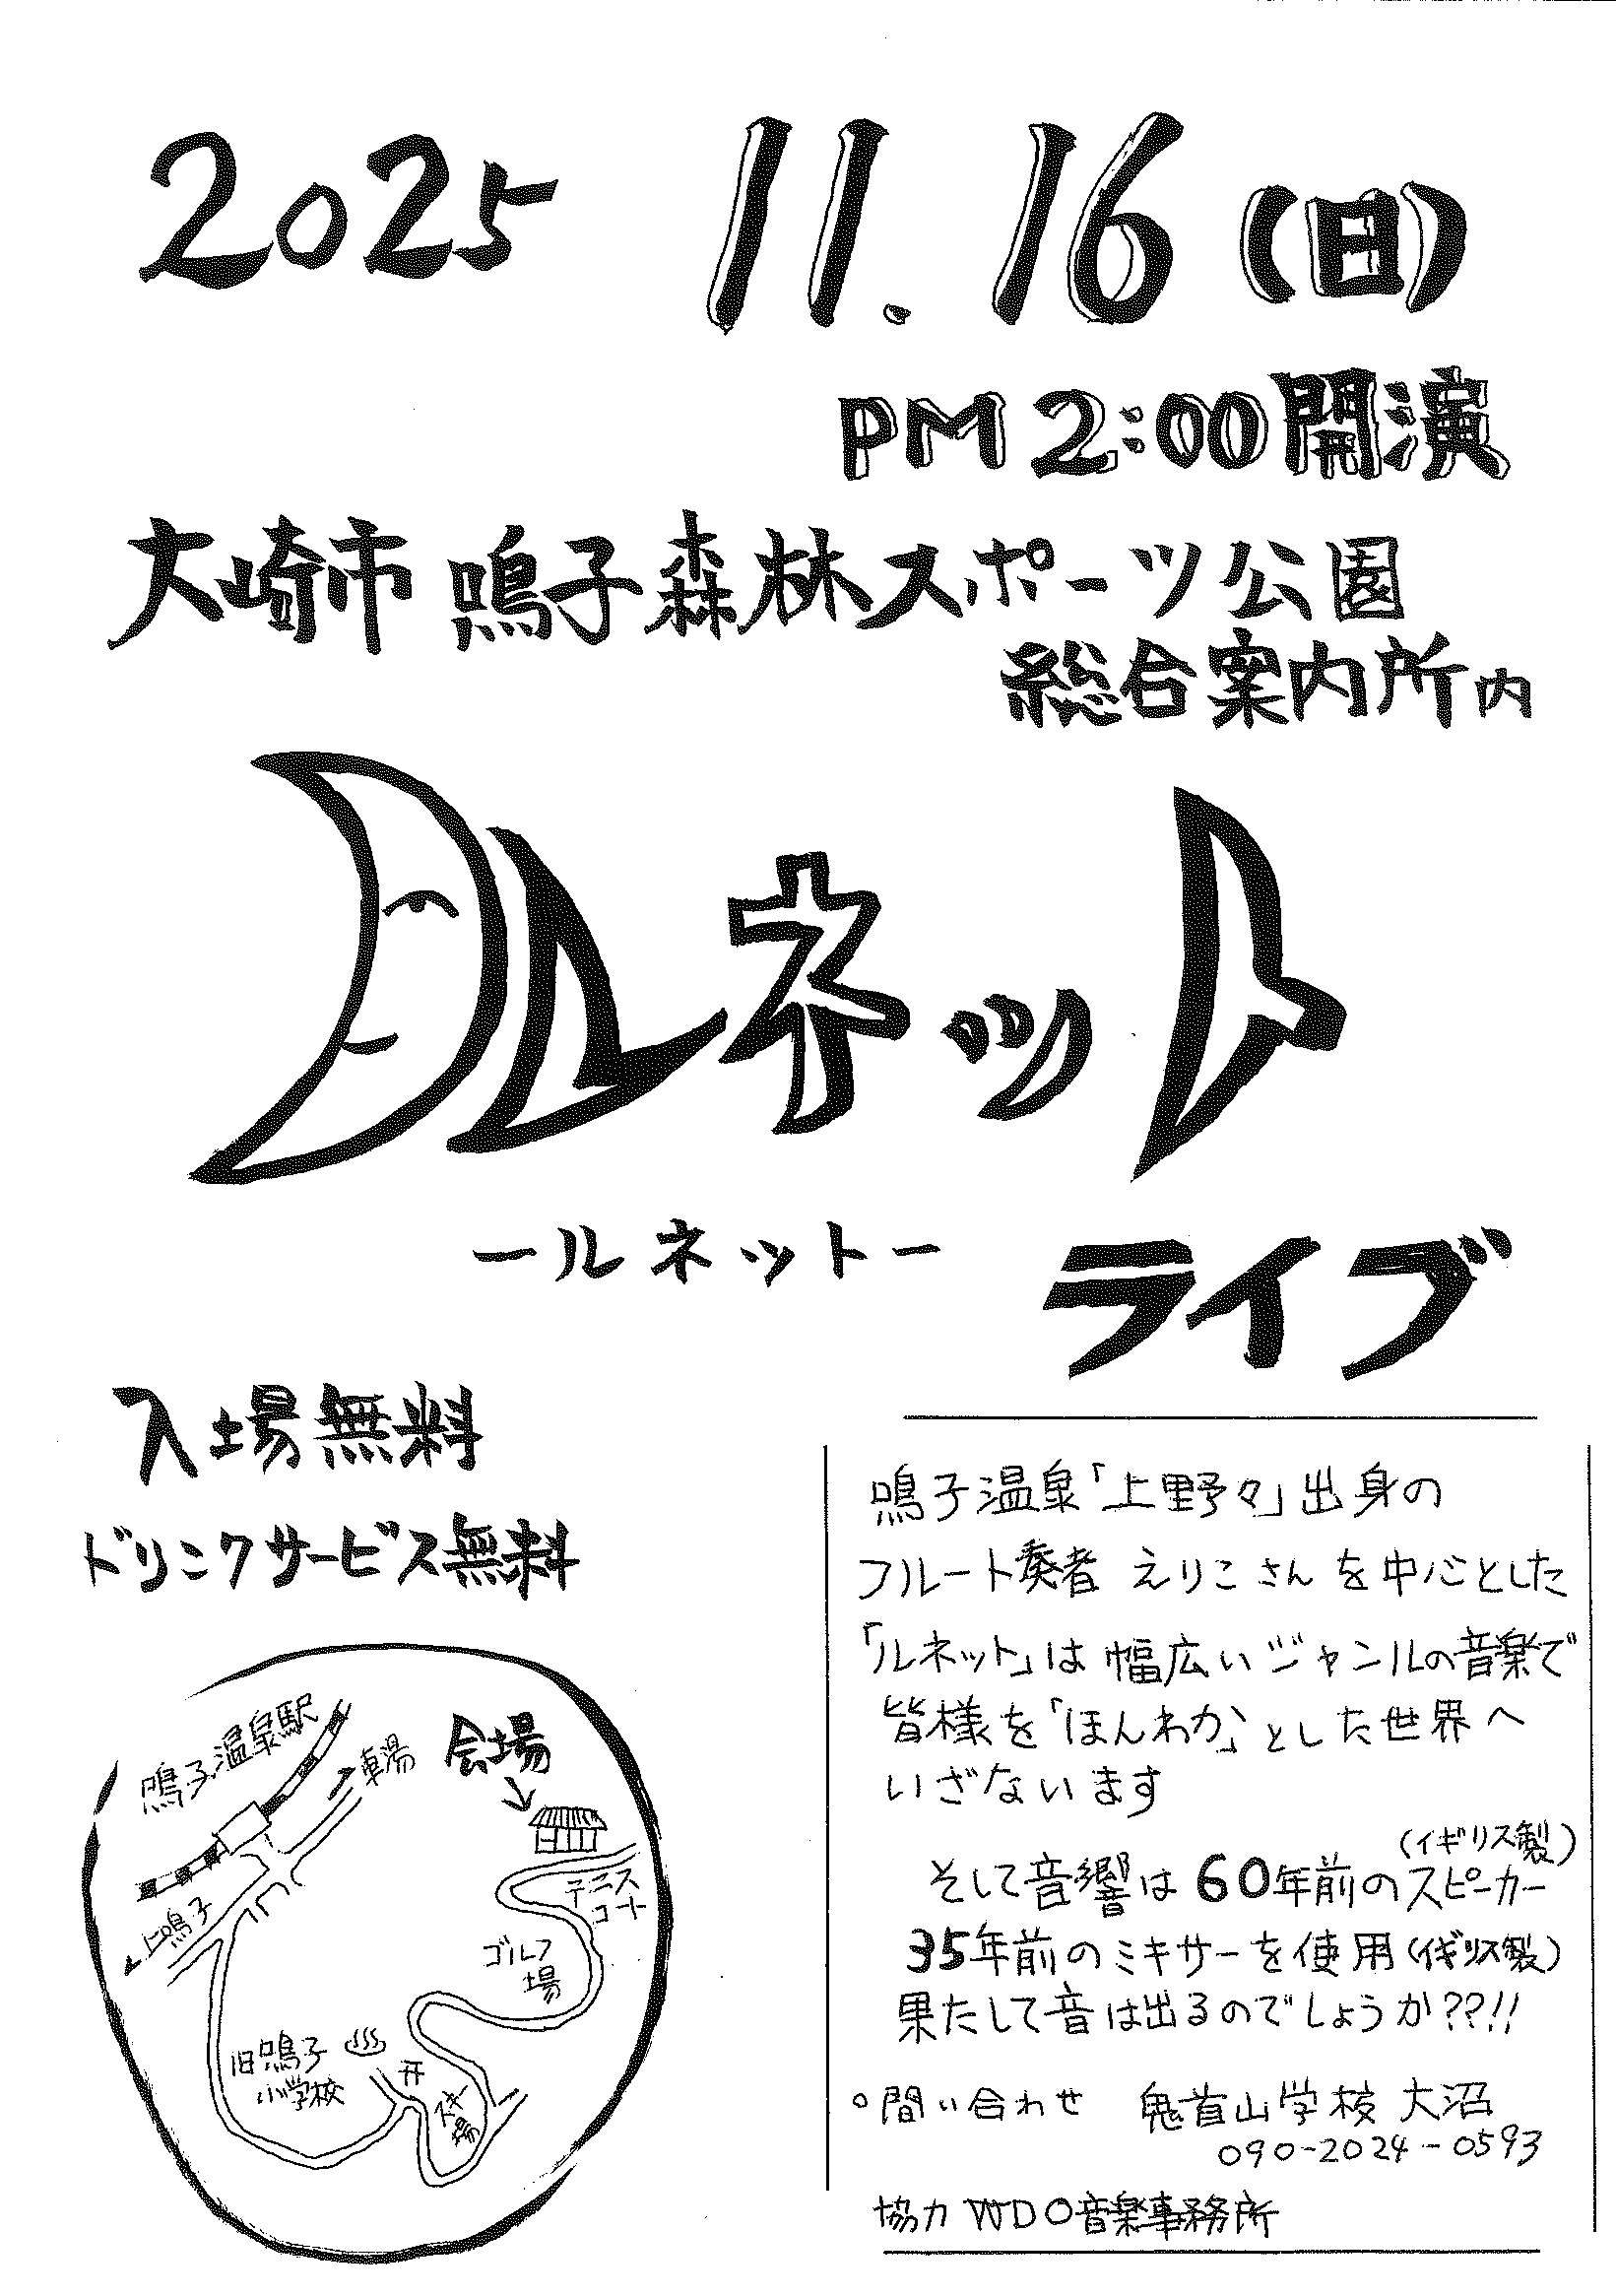 2025 11.16(日)
PM2:00開演
大崎市 鳴子森林スポーツ公園
総合案内所内
ルネット
ールネットー
ライブ
入場無料
ドリンクサービス無料
鳴子温泉「上野々」出身の
フルート奏者 えりこさんを中心とした
「ルネット」は幅広いジャンルの音楽で
皆様を「ほんわか」とした世界へ
いざないます
(イギリス製)
そして音響は60年前のスピーカー
35年前のミキサーを使用(イギリス製)
果たして音は出るのでしょうか??!!
○問い合わせ 鬼首山学校 大沼
090-2024-0593
協力 WDO音楽事務所
鳴子温泉駅
東湯
会場
テニス
コート
上鳴子
ゴルフ
場
旧鳴子
小学校